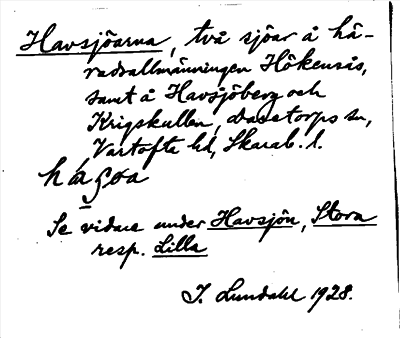 Havsjöarna, två sjöar å hä-
radsallmänningen Hökensås,
samt å Havsjöberg och
Krigskullen, Daretorps sn,
Vartofta hd, Skarab. l.
Se vidare under Havsjön, Stora
resp. Lilla
J. Lundahl 1928.